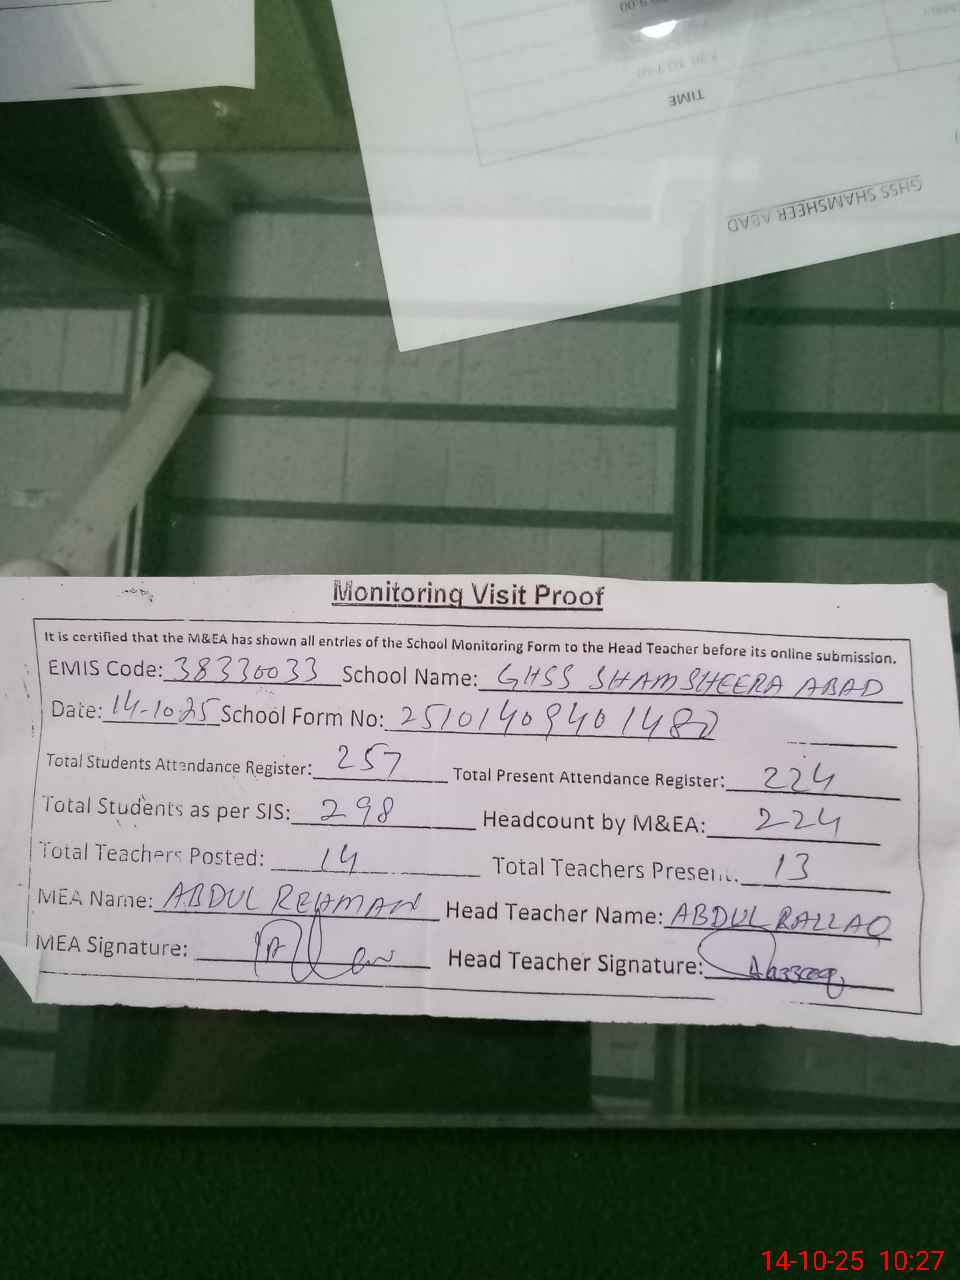 00:6 0T
TIME
GHSS SHAMSHEER ABAD
Monitoring Visit Proof
It is certified that the M&EA has shown all entries of the School Monitoring Form to the Head Teacher before its online submission.
EMIS Code: 38330033 School Name: GHSS SHAMSHEERA ABAD
Date: 14-10-25 School Form No: 25101409401482
Total Students Attendance Register: 257 Total Present Attendance Register: 224
Total Students as per SIS: 298 Headcount by M&EA: 224
Total Teachers Posted: 14 Total Teachers Present: 13
MEA Name: ABDUL REHMAN Head Teacher Name: ABDUL RAZZAQ
MEA Signature: Head Teacher Signature:
14-10-25 10:27